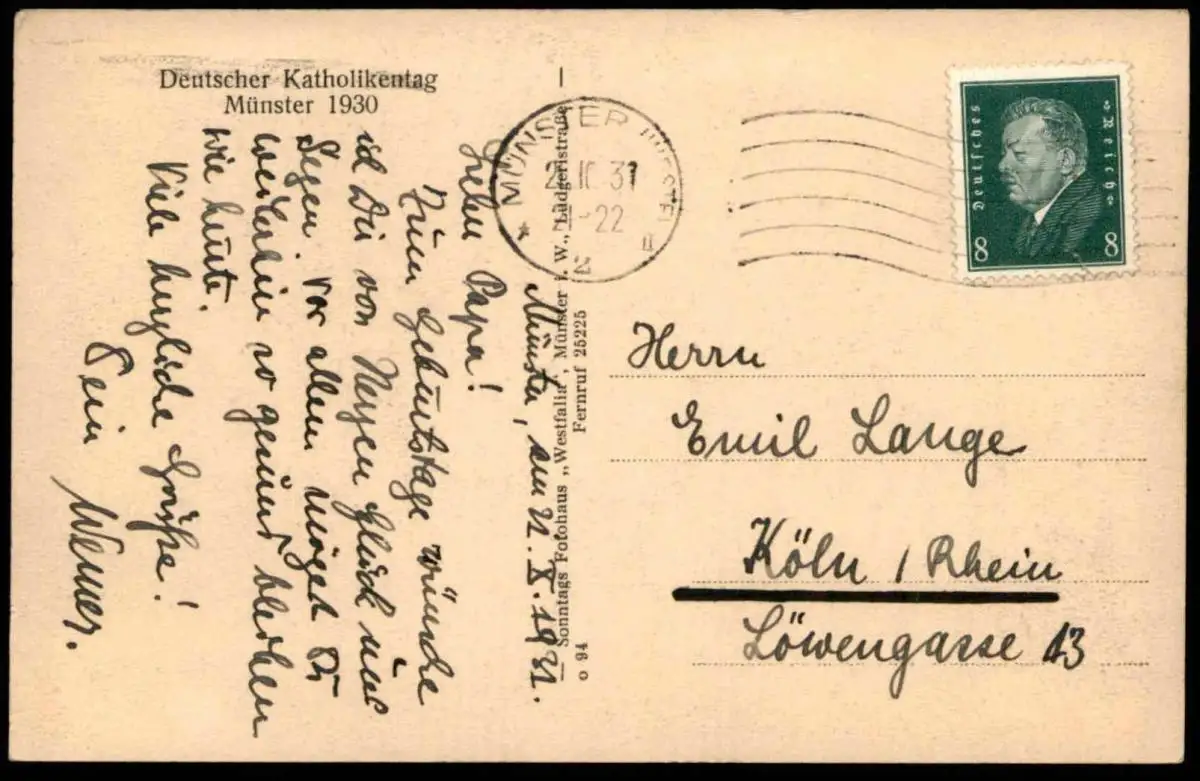 Deutscher Katholikentag
Münster 1930
Münster, am 21. X. 1931.
Lieber Papa!
Zum Geburtstage wünsche
ich Dir von Herzen Glück und
Segen. Vor allem mögest Du
weiterhin so gesund bleiben
wie heute.
Viele herzliche Grüße!
Dein Werner.
Sonntags Fotohaus „Westfalia", Münster i. W., Ludgeristraße
Fernruf 25225
o 94
MÜNSTER
31
-22
Deutsches Reich
8 8
Herrn
Emil Lange
Köln / Rhein
Löwengasse 13